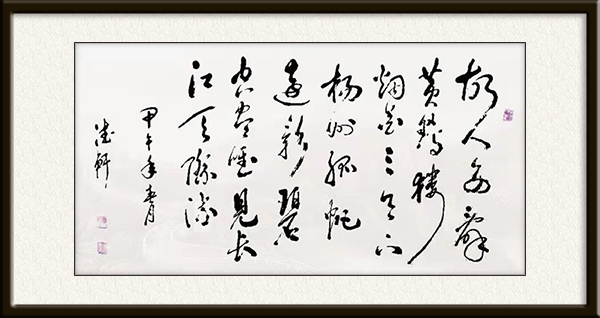 故人西辭
黄鶴樓
烟花三月下
揚州孤帆
遠影碧
空盡唯見長
江天際流
甲午年春月
軒